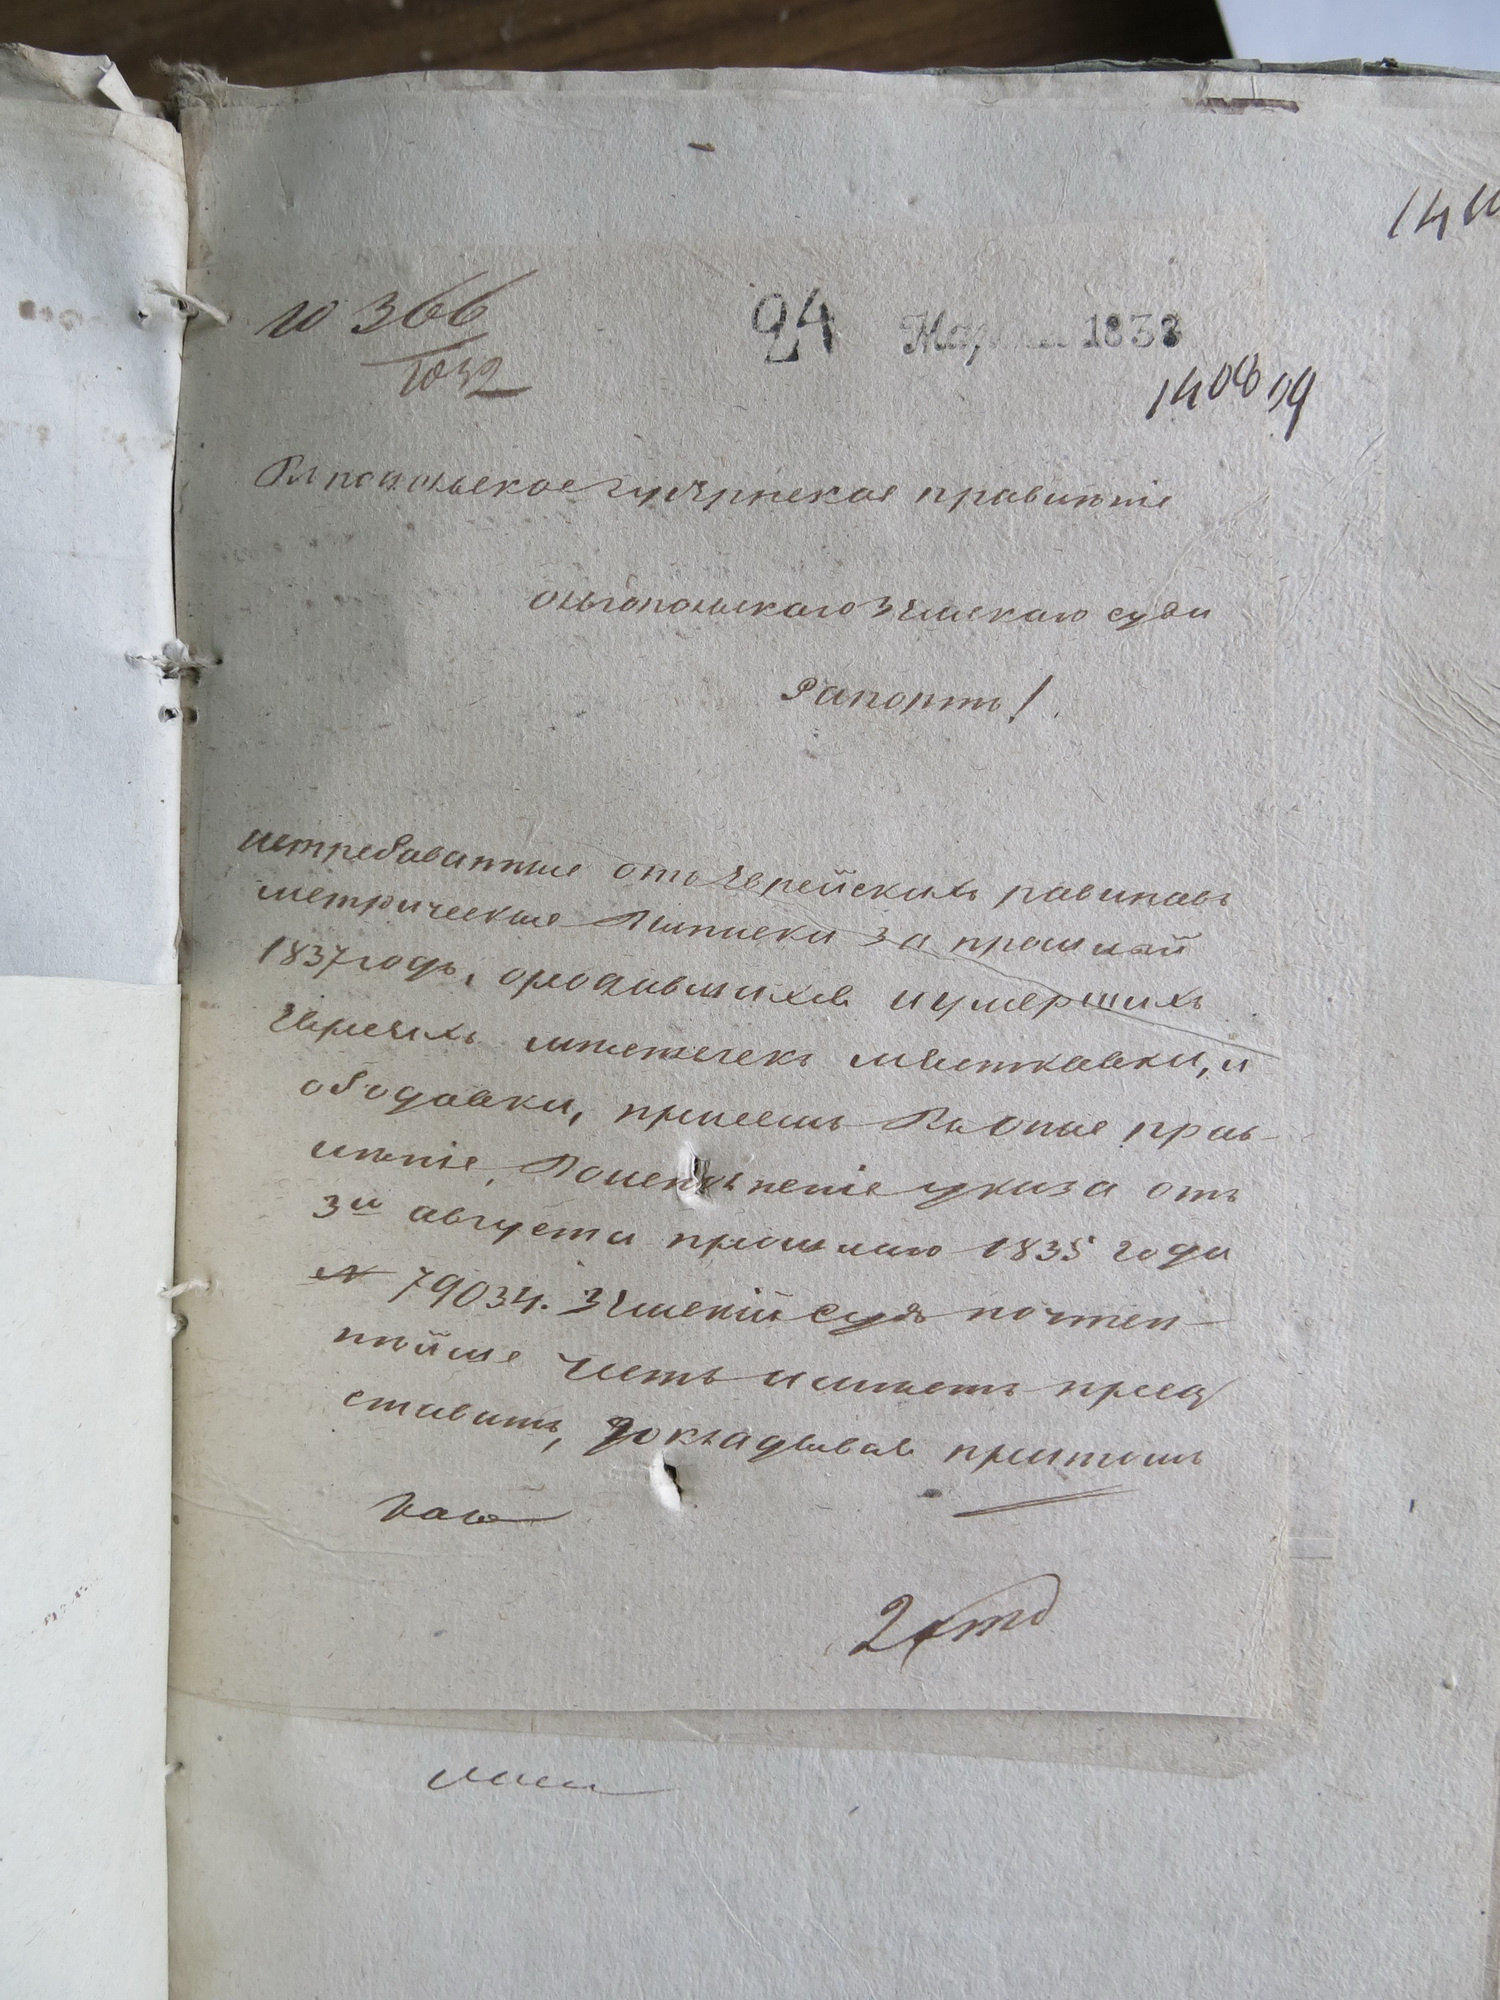 366
1032
24 Марта 1838
140809
Въ подольское губернское правленіе
ольгопольскаго земскаго суда
Рапортъ!
истребованные отъ Еврейскихъ равинавъ
метрические выписки за прошлый
1837 годъ, ородившихся и умершихъ
Евреяхъ мѣстечекъ мястковки, и
ободовки, присемъ въ Оные прав-
ленiе, во исполненiе указа отъ
3го августа прошлаго 1835 года
№ 79034. Земскiй судъ почтен-
нѣйше честь имѣетъ пред
ставить, докладывая притомъ
2 отд